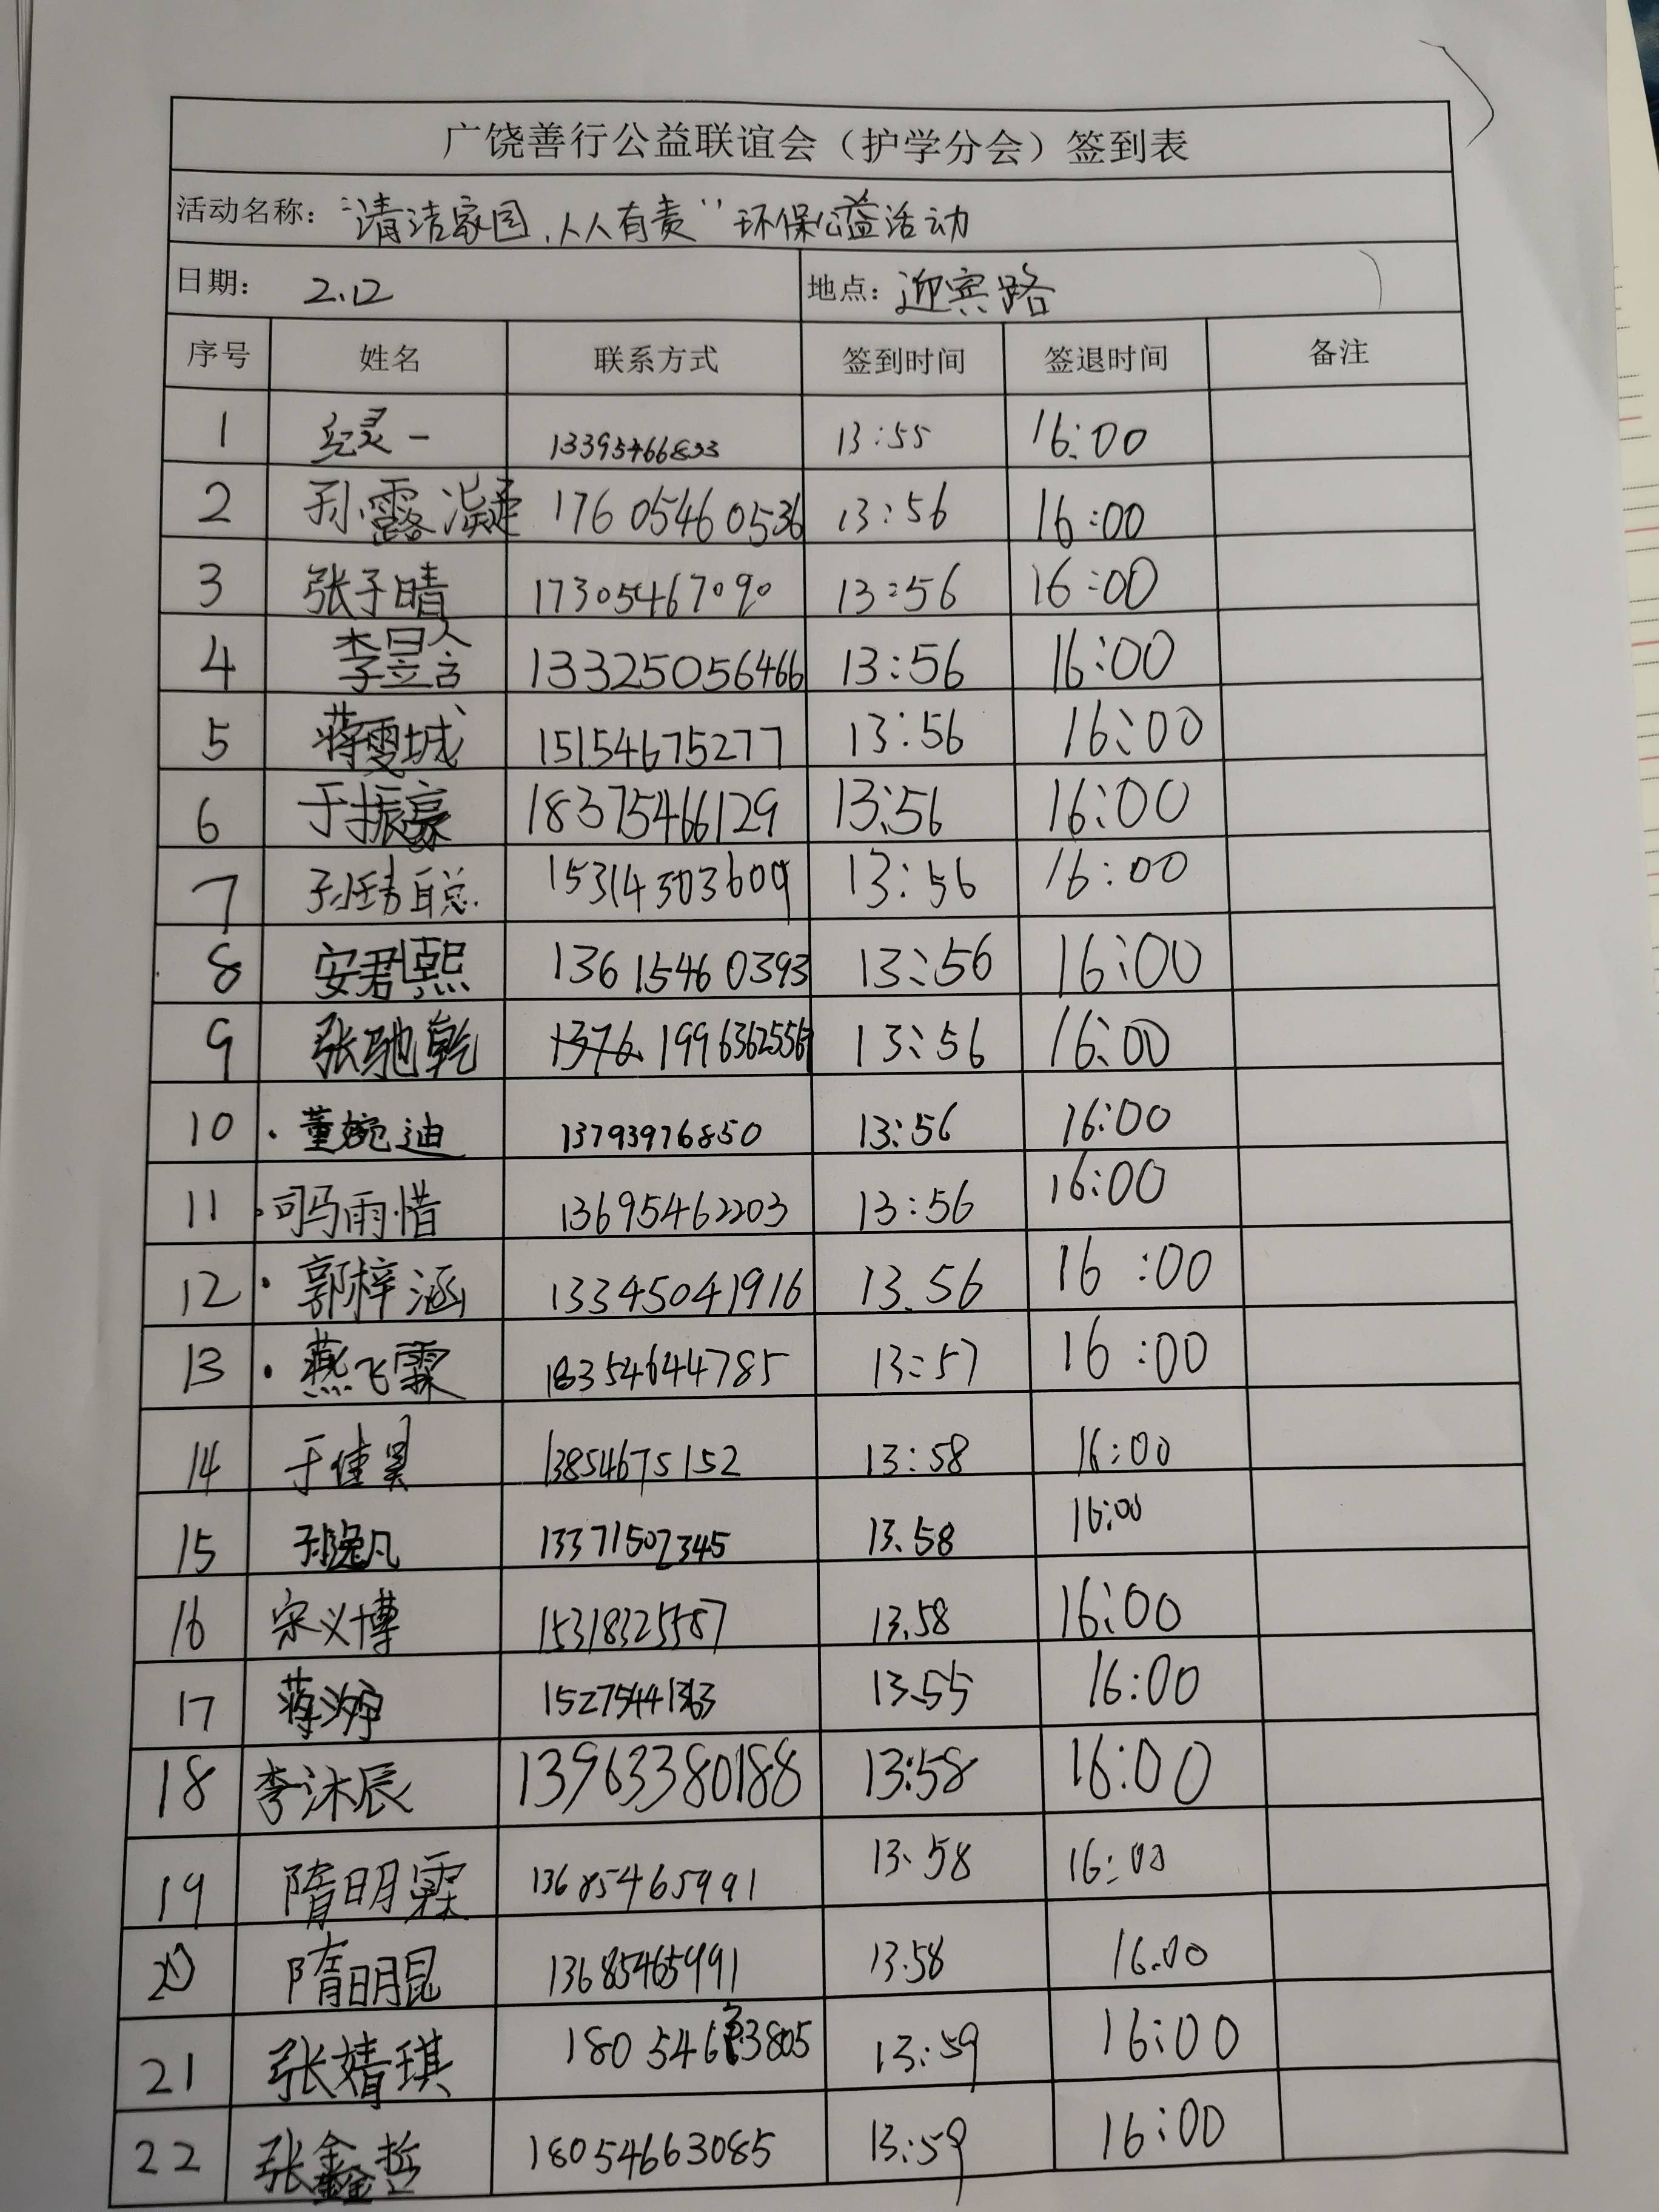 广饶善行公益联谊会（护学分会）签到表
活动名称：“清洁家园，人人有责”环保公益活动
日期： 2.12 地点：迎宾路
序号 姓名 联系方式 签到时间 签退时间 备注
1 纪灵一 13:55 16:00
2 孙露凝 17605460536 13:56 16:00
3 张子晴 17305467090 13:56 16:00
4 13325056466 13:56 16:00
5 蒋雯城 15154675277 13:56 16:00
6 于振豪 18375466129 13:56 16:00
7 孙玮聪 15314303609 13:56 16:00
8 安君熙 13615460393 13:56 16:00
9 张驰乾 13:56 16:00
10 董婉迪 13793976850 13:56 16:00
11 司马雨惜 13695462203 13:56 16:00
12 郭梓涵 13345041916 13.56 16:00
13 燕飞霖 18354644785 13:57 16:00
14 于佳昊 13854675152 13:58 16:00
15 孙逸凡 13371502345 13.58 16:00
16 宋义博 15318325587 13.58 16:00
17 13.55 16:00
18 李沐辰 13963380188 13:58 16:00
19 隋明霖 13685465991 13.58 16:00
20 隋明昆 13685465991 13.58 16.00
21 张婧琪 13:59 16:00
22 张鑫哲 18054663085 13:59 16:00